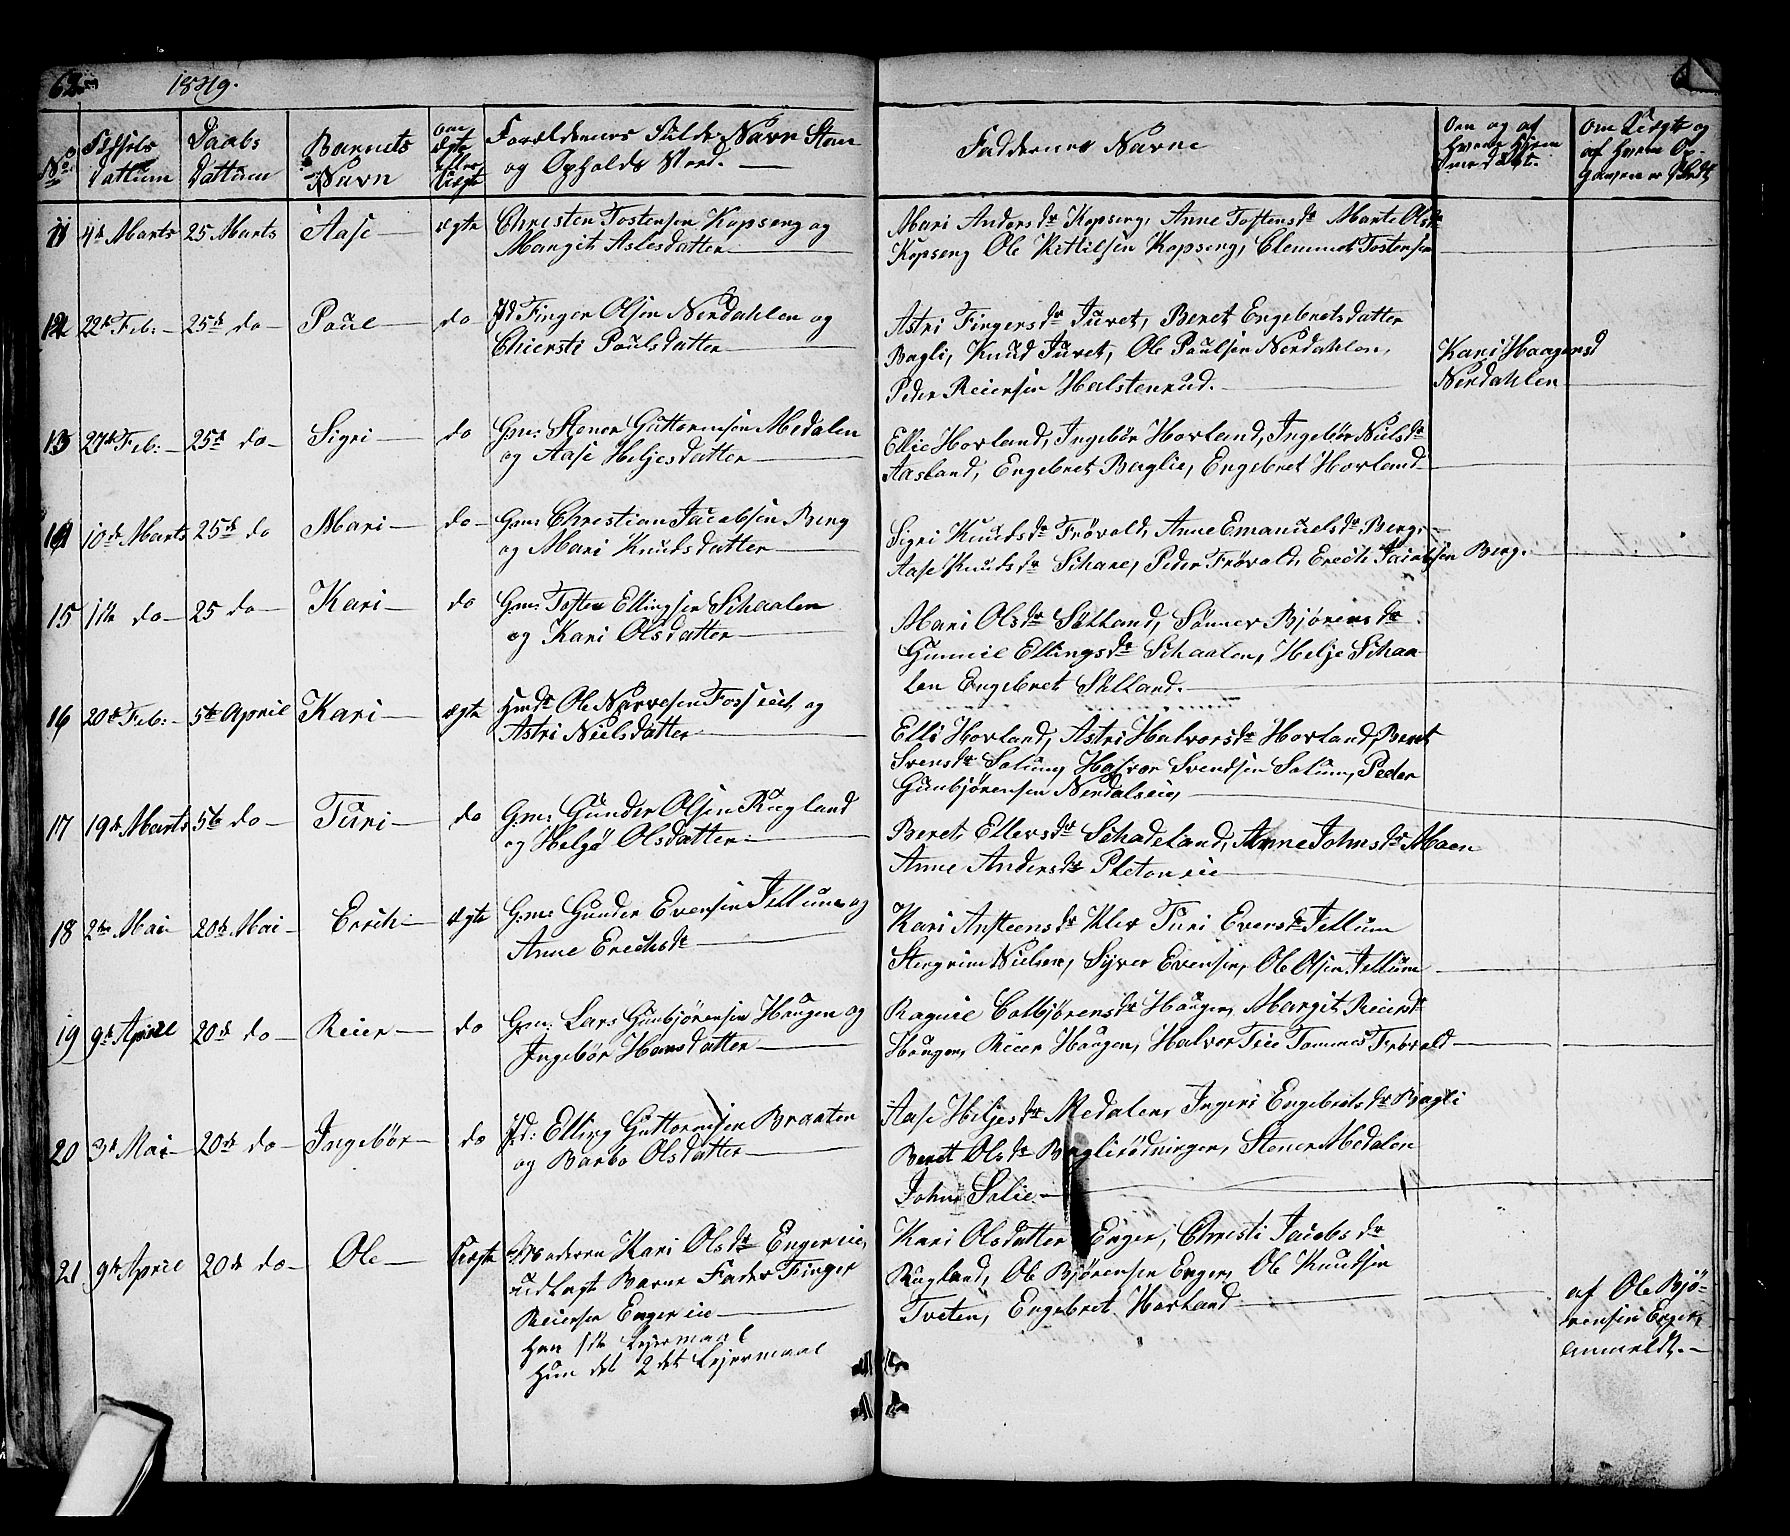 62 1849. 6
No Fødsels Dattum
Daabs Dattum
Barnets Navn
Om Ægte eller Uægte
Forældrenes Fulde Navn Stan
og Opholds Sted.
Faddernes Navne
Om og af
Hvem Hjem
medøbt.
om Uægte og
af hvem Op-
gaven er skedt
11 4de Marts 25 Marts Aase ægte Christen Tostensen Kopseng og
Margit Aslesdatter
Mari Andersdr Kopseng, Anne Tostensdr Marte Olsdr
Kopseng Ole Kittilsen Kopseng, Clemmet Tostensen
12 22de Feb: 25de do Paul do Jd Finger Olsen Nerdahlen og
Chiersti Paulsdatter
Astri Fingersdr Juvet, Beret Engebretsdatter
Bagli, Knud Juvet, Ole Paulsen Nerdahlen,
Peder Reiersen Halstenrud.
Kari Haagensd
Nerdahlen
13 27de Feb: 25de do Sigri do Gm: Stener Guttormsen Medalen
og Aase Heljesdatter
Ellie Hovland, Ingebør Hovland, Ingebør Nielsdr
Aasland, Engebret Baglie, Engebret Hovland
14 10de Marts 25de do Mari do Gm: Christian Jacobsen Berg
og Mari Knudsdatter
Sigri Knudsdr Frøvold, Anne Emanuelsdr Berg
Aase Knudsdr Schare, Peder Frøvold, Erech Jacobsen Berg.
15 1ste do 25 do Kari do Gm: Tosten Ellingsen Schaalen
og Kari Olsdatter
Mari Olsdr Sølland, Sønnev Bjørensdr
Gunnil Ellingsdr Schaalen, Helje Schaa-
len Engebret Sølland.
16 20de Feb: 5te April Kari ægte Hmd Ole Narvesen Fosseiet og
Astri Nielsdatter
Elli Hovland, Astri Halvorsdr Hovland, Beret
Svensdr Solum, Halvor Svendsen Solum, Peder
Gunbjørensen Nerdalseie,
17 19de Marts 5te do Turi do Gm: Gunder Olsen Rugland
og Helgø Olsdatter
Beret Ellevsdr Schadeland, Anne Johnsdr Moen
Anne Andersdr Pletoneie
18 2den Mai 20de Mai Erich ægte Gm: Gunder Evensen Jellum og
Anne Erichsdr
Kari Anstensdr Klev Turi Evensdr Jellum
Stengrim Nielsen, Syver Evensen, Ole Olsen Jellum
19 9de April 20de do Reier do Gm: Lars Gunbjørensen Haugen og
Ingebør Hansdatter
Ragnil Colbjørensdr Haugen, Margit Reiersdr
Haugen, Reier Haugen, Halvor Teie Tommes Frøvold
20 3de Mai 20de do Ingebør do Jd: Elling Guttormsen Braaten
og Barbo Olsdatter
Aase Heljesdr Medalen, Ingeri Engebretsdr Bagli
Beret Olsdr Baglirødningen, Stener Medalen
John Solie
21 9de April 20de do Ole Uægte Moderen Kari Olsdr Engereie,
udlagt Barne Fader Finger
Reiersen Engereie
Han 1ste Lejermaal
Hun det 2det Lejermaal
Kari Olsdatter Enger, Christi Jacobsdr
Rugland, Ole Bjørensen Enger, Ole Knudsen
Tveten, Engebret Hovland
af Ole Bjø-
rensen Enger,
anmeldt.